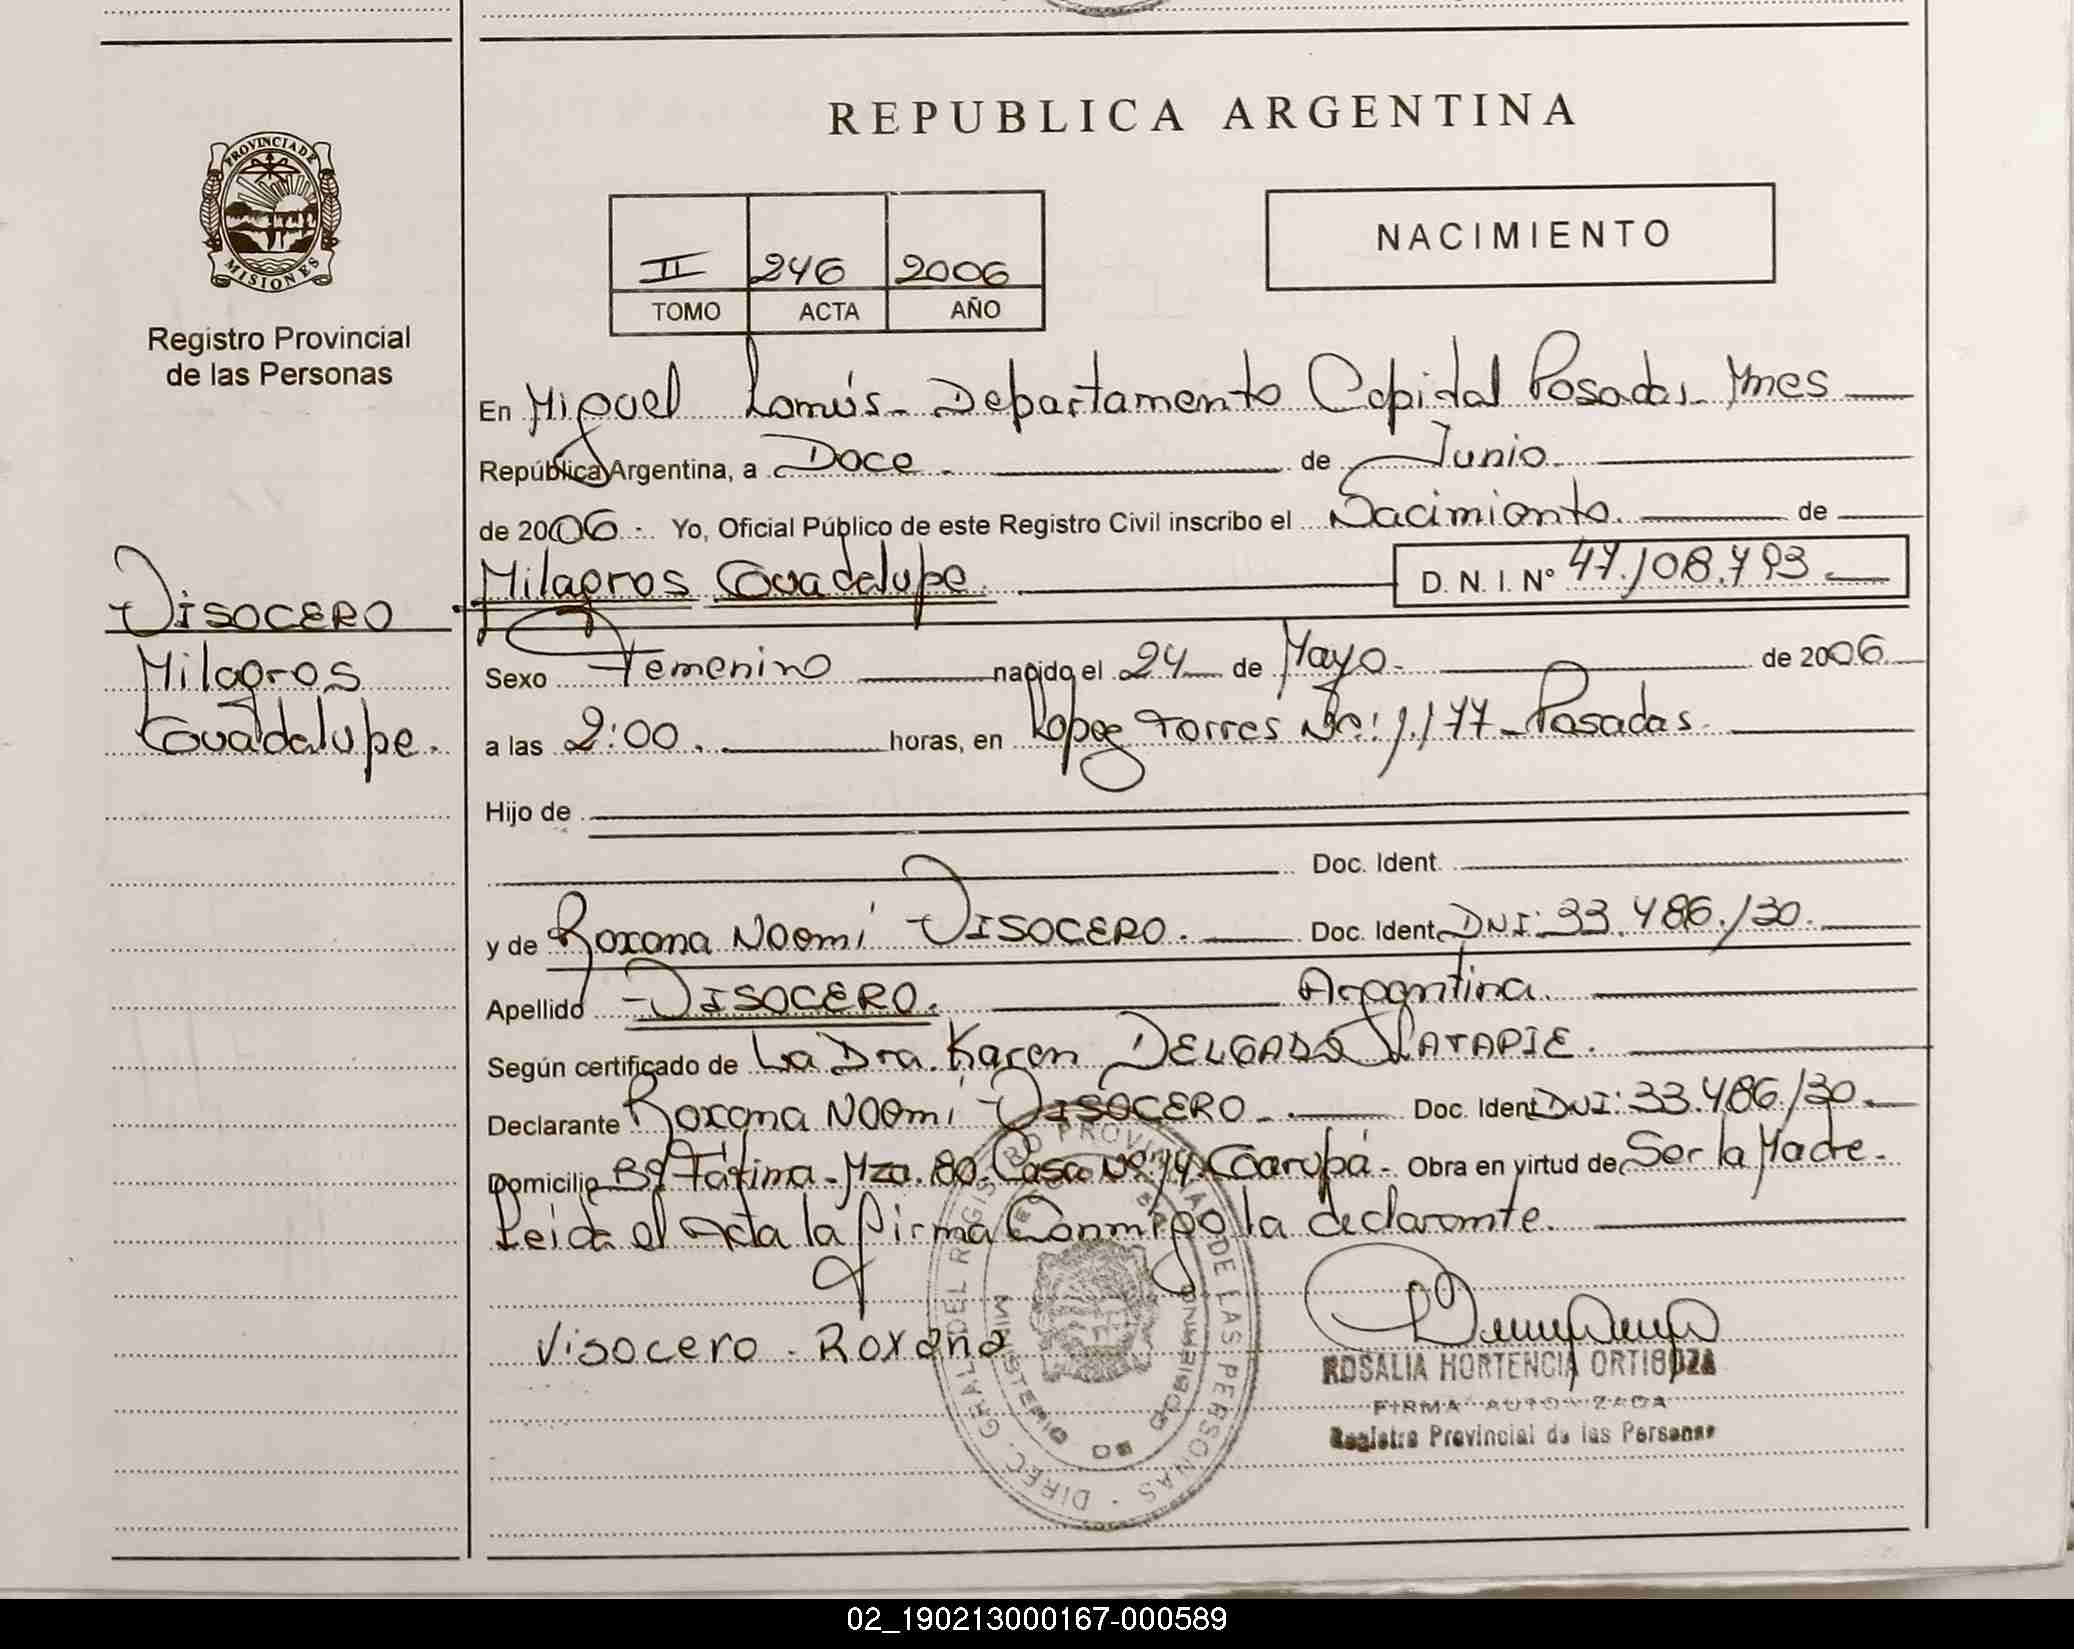 REPUBLICA ARGENTINA
PROVINCIA DE
MISIONES
Registro Provincial
de las Personas
NACIMIENTO
II 246 2006
TOMO ACTA AÑO
En Miguel Lanús - Departamento Capital Posadas - Mnes
República Argentina, a Doce . de Junio
de 2006 . Yo, Oficial Público de este Registro Civil inscribo el Nacimiento. de
Milagros Guadalupe. D. N. I. Nº 47.108.793.
VISOCERO
Milagros
Guadalupe.
Sexo Femenino nacido el 24 de Mayo. de 2006
a las 2:00. horas, en Lopez Torres Nº: 1.177 - Posadas.
Hijo de
Doc. Ident.
y de Roxana Noemí VISOCERO. Doc. Ident. DNI: 33.486.130.
Apellido VISOCERO. Argentina.
Según certificado de La Dra. Karen DELGADO LATAPIE.
Declarante Roxana Noemí VISOCERO . Doc. Ident DNI: 33.486.130.
Domicilio Bº Fátima - Mza. 80. Casa Nº 14. Garupá - Obra en virtud de Ser la Madre.
Leida el Acta la firma Conmigo la declarante.
Visocero . Roxana
DIREC. GRAL. DEL REGISTRO PROVINCIAL DE LAS PERSONAS
MINISTERIO DE GOBIERNO
ROSALIA HORTENCIA ORTIGOZA
FIRMA AUTORIZADA
Registro Provincial de las Personas
02_190213000167-000589